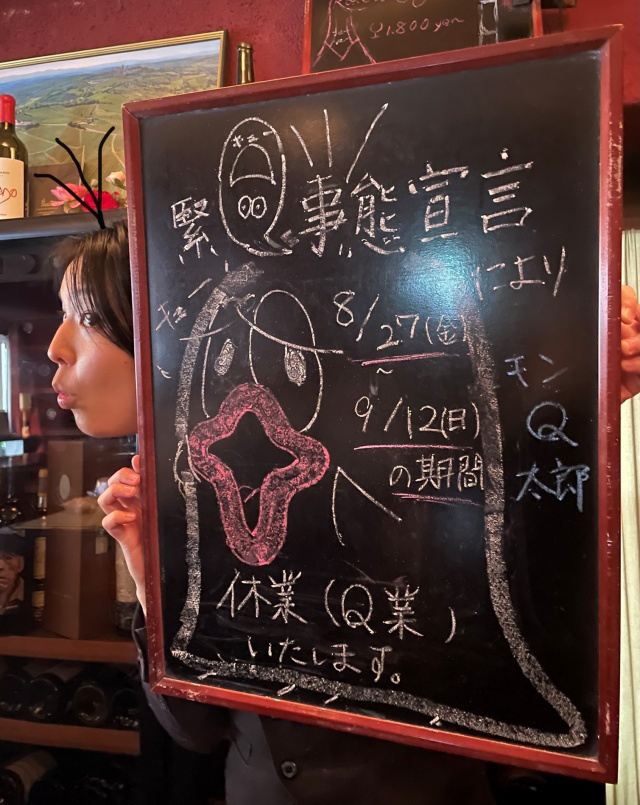 ¥1.800 yen
緊Q事態宣言
により
8/27(金)
~
9/12(日)
の期間
モン
Q
太郎
休業(Q業)
いたします。